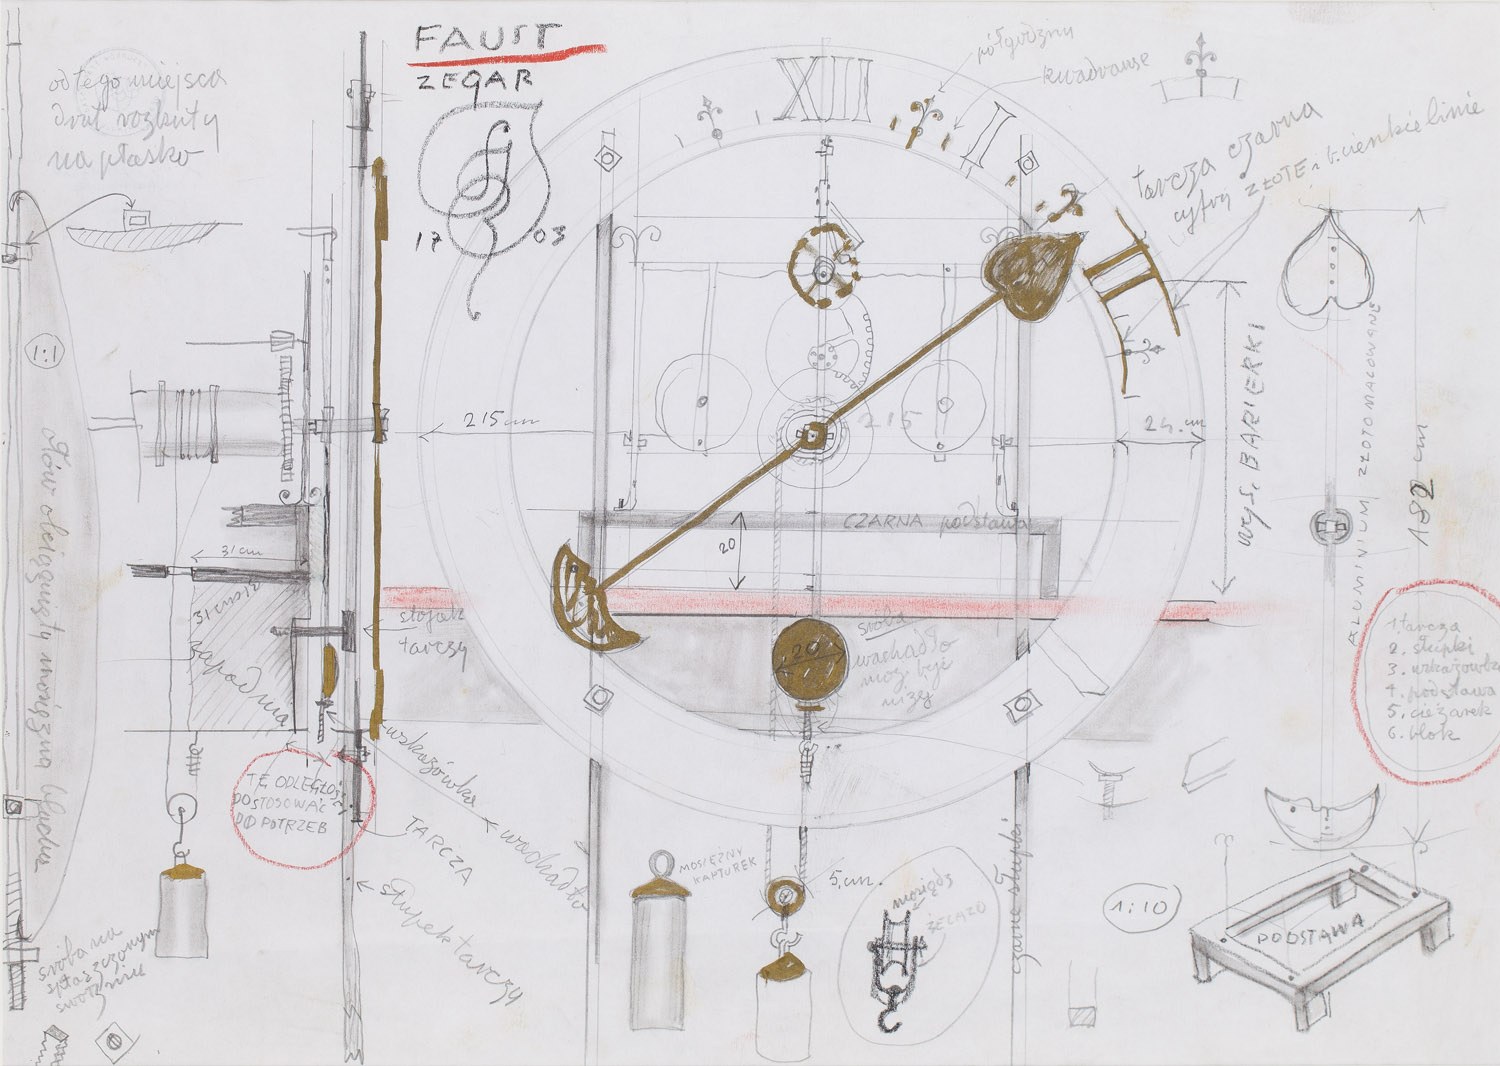 FAUST
ZEGAR
17 03
od tego miejsca
drut rozkuty
na płasko
XII
I
II
półgodziny
kwadranse
tarcza czarna
cyfry ZŁOTE i cienkie linie
1:1
215 cm
215
24. cm
wys. BARIERKI
ALUMINIUM ZŁOTO MALOWANE
182 cm
CZARNA podstawa
20
31 cm
31 cm
zapadnia
stojak
tarczy
śruba
20
wachadło
może być
niżej
1. tarcza
2. słupki
3. wskazówka
4. podstawa
5. ciężarek
6. blok
TE ODLEGŁOŚĆ
DOSTOSOWAĆ
DO POTRZEB
wskazówka
wachadło
TARCZA
słupek tarczy
MOSIĘŻNY
KAPTUREK
5 cm.
mosiądz
ŻELAZO
czarne słupki
1:10
PODSTAWA
śruba na
spłaszczonym